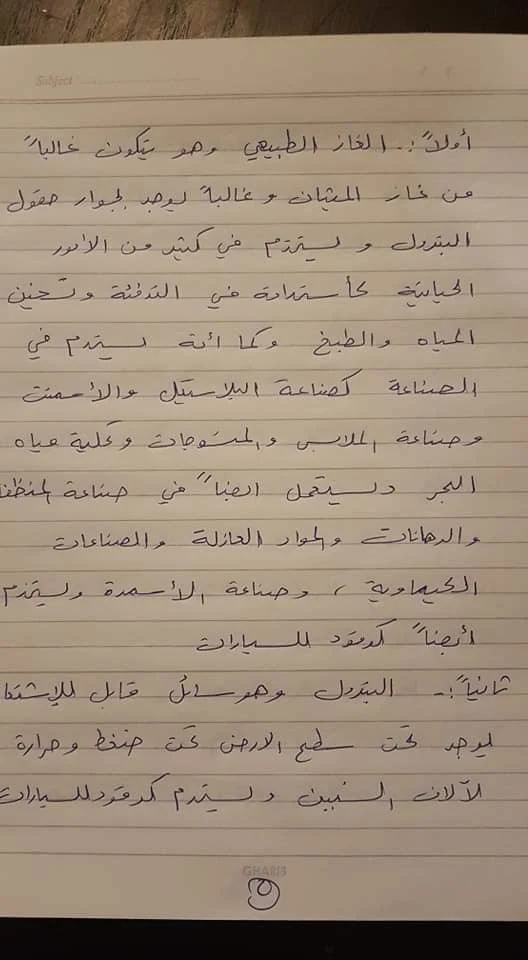 Subject
أولاً :. الغاز الطبيعي وهو يتكون غالباً
من غاز الميثان وغالباً يوجد بجوار حقول
البترول و يستخدم في كثير من الأمور
الحياتية كأستخدامه في التدفئة وتسخين
المياه والطبخ وكما أنه يستخدم في
الصناعة كصناعة البلاستيك والأسمنت
وصناعة الملابس والمنسوجات وتحلية مياه
البحر ويستعمل ايضاً في صناعة المنظفا
والدهانات والمواد العازلة والصناعات
الكيماوية ، وصناعة الأسمدة ويستخدم
أيضاً كوقود للسيارات
ثانياً :. البترول وهو سائل قابل للإشتعا
يوجد تحت سطح الارض تحت ضغط وحرارة
لآلاف السنين ويستخدم كوقود للسيارات
GHARIB